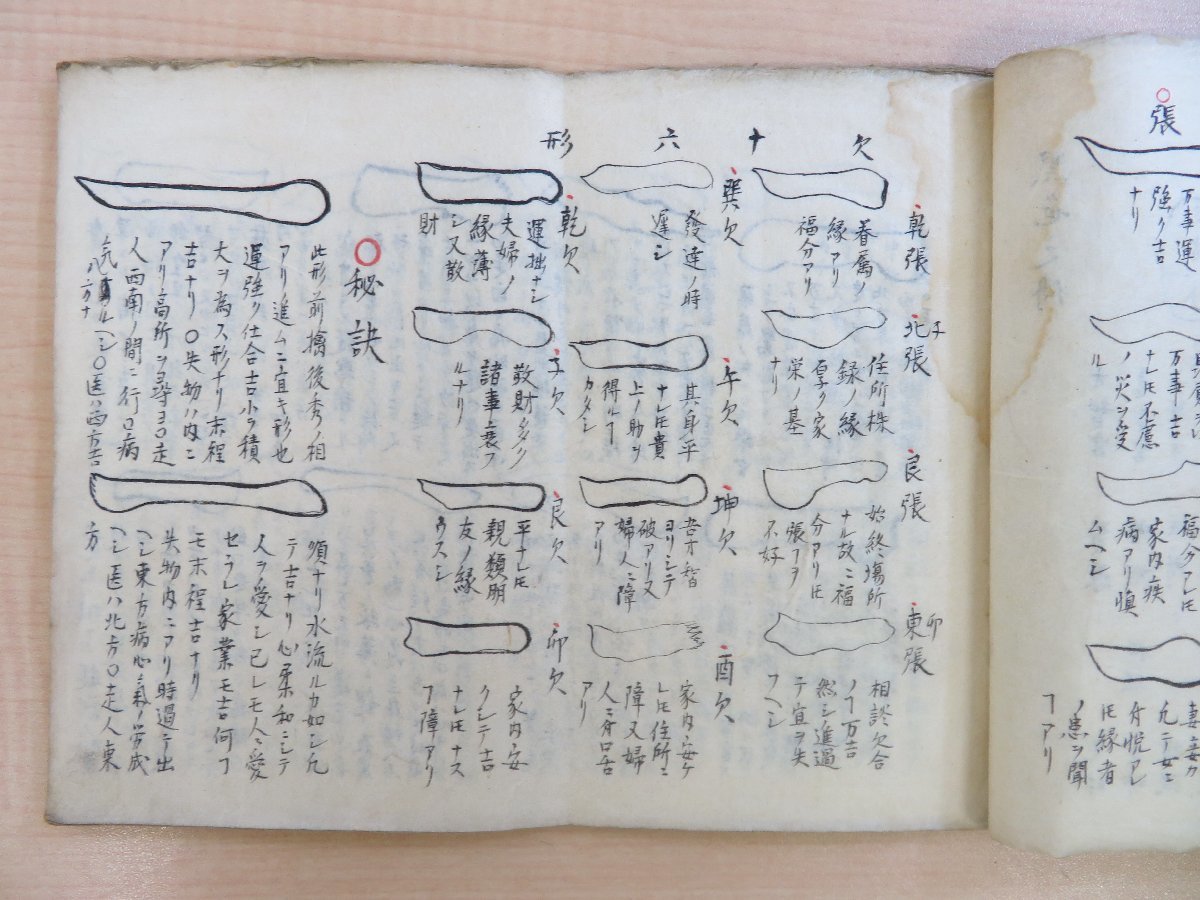 張
万事運
強ク吉
ナリ
万事吉
ナレ𪜈不慮
ノ災ヲ受
ル
福分アレ𪜈
家内疾
病アリ慎
ムヘシ
𪜈縁者
ノ患ヲ聞
ヿアリ
欠十六形
乾張
眷属ノ
縁アリ
福分アリ
子
北張
住所株
録ノ縁
厚ク家
栄ノ基
ナリ
艮張
始終場所
ナル故ニ福
分アリ𪜈
張ヿヲ
不好
卯
東張
相談欠合
ノヿ万吉
然シ進過
テ宜ヲ失
フヘシ
巽欠
發達ノ時
遅シ
午欠
其身平
ナレ𪜈貴
上ノ助ヲ
得ルヿ
カタシ
坤欠
吾才智
ヨリシテ
破アリ又
婦人ニ障
アリ
酉欠
家内安ケ
レ𪜈住所ニ
障又婦
人ニ弁口舌
アリ
乾欠
運拙ナシ
夫婦ノ
縁薄
シ又散
財
子欠
散財多ク
諸事衰フ
ルナリ
艮欠
平ナレ𪜈
親類朋
友ノ縁
ウスシ
卯欠
家内安
クシテ吉
ナレ𪜈ナス
ヿ障アリ
〇秘訣
此形ノ前擒後秀ノ相
アリ進ムニ宜キ形也
運強ク仕合吉小ヲ積
大ヲ為ス形ナリ末程
吉ナリ〇失物ハ内ニ
アリ高所ヲ尋ヨ〇走
人西南ノ間ニ行〇病
ヘシ〇医ハ西方吉
順ナリ水流ルカ如シ凢
テ吉ナリ心柔和ニシテ
人ヲ愛シ已レモ人ニ愛
セラレ家業モ吉何ヿ
モ末程吉ナリ
失物内ニアリ時過テ出
ヘシ東方病心氣ノ労成
ヘシ医ハ北方〇走人東
方